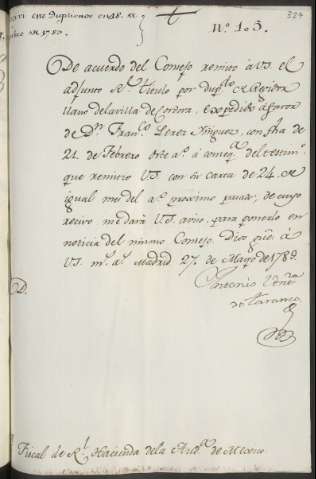 324
N.º 105.
De acuerdo del Consejo remito à VS. el
adjunto R.l titulo por dup.do de Regidor
llano de la villa de Cordova, expedido a favor
de D.n Fran.co Perez Yñiguez, con fha de
21. de Febrero de este a.o à conseq.a del testim.o
que remitio VS. con su carta de 24. de
igual mes del a.o proximo pasado, de cuyo
recivo me dará VS. aviso para ponerlo en
noticia del mismo Consejo. Dios gue. à
VS. m.s a.s Madrid 27. de Mayo de 1789.
Antonio Vent.a
de Taranco
S.or Fiscal de R.l Hacienda de la Aud.a de Mexico.